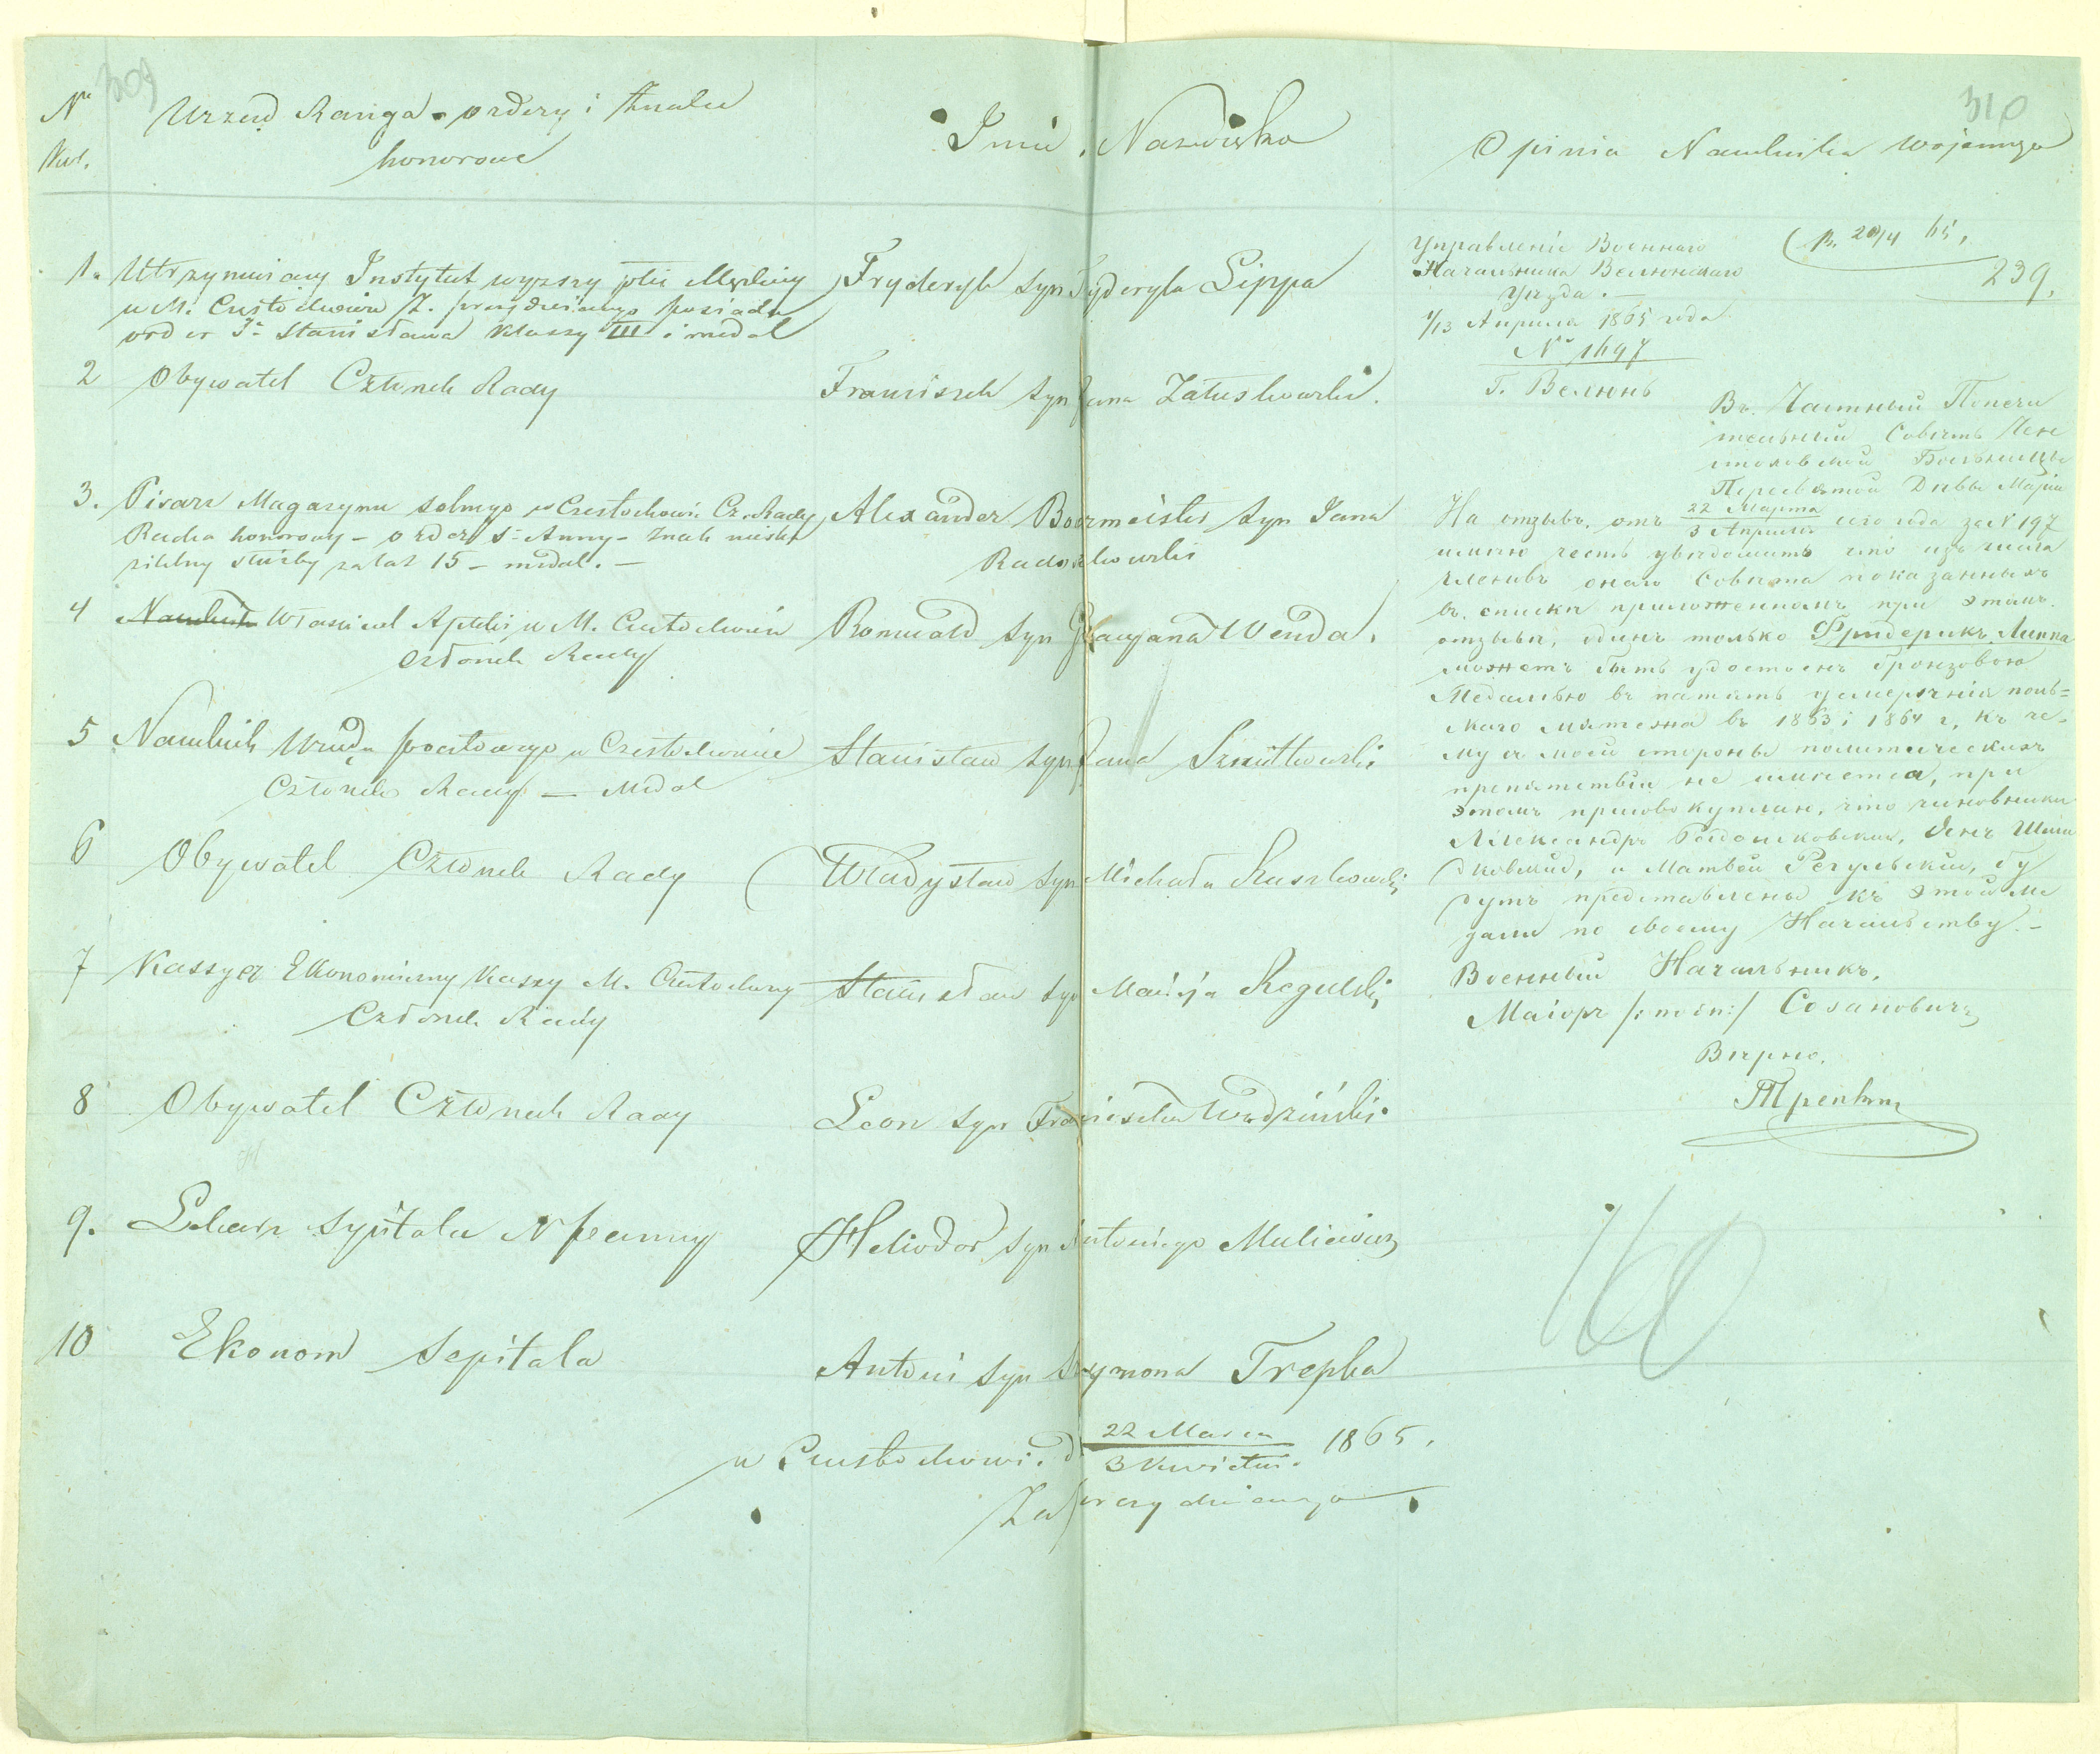 309
310
Nr Urzęd Ranga - ordery i Znaki
honorowe
Imie i Nazwisko
Opinia Naczelnika Wojennego
1. Utrzymuiący Instytut wyższy płci Męzkiej Fryderyk syn Fryderyka Lippa
w M. Częstochowie Z. prezyduiącego posiada
order Sgo Stanisława Klassy III i medal
2 Obywatel Członek Rady Franciszek syn Jana Załuskowski.
3. Pisarz Magazynu Solnego w Czestochowie Cz. Rady Alexander Boermeister syn Jana
Radca honorowy - order S. Anny - Znak nieska
zitelny służby za lat 15 - medal. - Radoszkowski
4 Naczelnik Własciciel Apteki w M. Częstochowie Romuald syn Wenda.
członek Rady
5 Naczelnik Urzędu pocztowego w Czestochowie Stanisław syn Jana
Członek Rady - Medal
6 Obywatel Członek Rady Władysław syn Michała Kuszkowski
7 Kassyer Ekonomiczny Kassy M. Częstochowy Stanisław syn Macieja Regulski
Członek Rady
8 Obywatel Członek Rady Leon syn Franciszka Wodziński.
9. Lekarz Szpitala N Panny Heliodor syn Antoniego Muliewicz
10 Ekonom Szpitala Antoni syn Szymona Trepka
w Częstochowie d 22 Marca / 3 Kwietn. 1865.
Za prezyduiącego
Управленіе Военнаго
Начальника Велюнскаго
Уѣзда. -
1/13 Апрѣля 1865 года
№ 1697
Г. Велюнь
пр. 20/4 65.
239.
Въ Частный Попечи
тельный Совѣтъ Чен
стоховской Больницы
Пересвятой Дѣвы Маріи
На отзывъ отъ 22 Марта / 3 Апрѣля сего года за N 197
имѣю честь увѣдомить что изъ числа
членовъ онаго Совѣта показанныхъ
въ списки приложенномъ при этомъ
отзывѣ, одинъ только Фридерикъ Липпа
можетъ быть удостоенъ бронзовою
Медалью въ память усмиренія поль=
скаго мятежа въ 1863 i 1864 г, къ че-
му съ моей стороны политическихъ
препятствій не имѣется, при
этомъ присовокупляю, что чиновники
Александръ Радошковскій,
и Матвѣй Регульскій, бу
дутъ представлены къ этой ме
дали по своему Начальству. -
Военный Начальникъ,
Маіоръ /: подп :/ Созановичъ
Вѣрно.